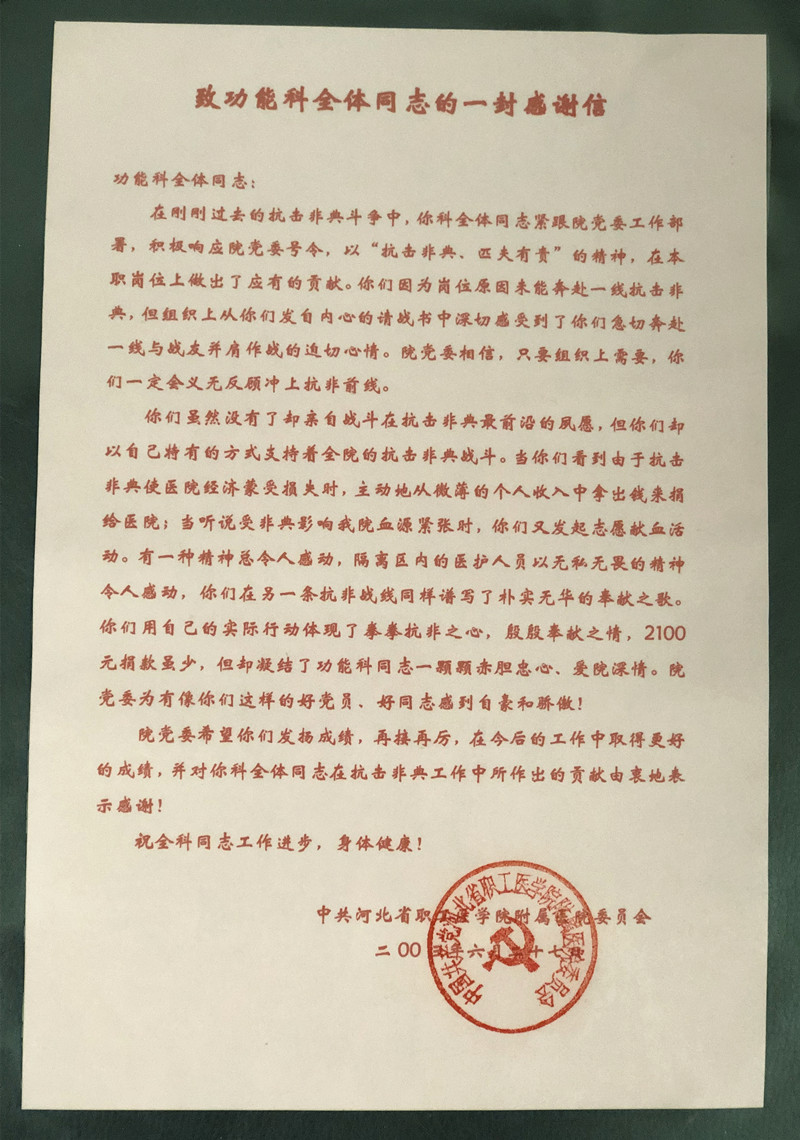 致功能科全体同志的一封感谢信
功能科全体同志：
在刚刚过去的抗击非典斗争中，你科全体同志紧跟院党委工作部
署，积极响应院党委号令，以“抗击非典、匹夫有责”的精神，在本
职岗位上做出了应有的贡献。你们因为岗位原因未能奔赴一线抗击非
典，但组织上从你们发自内心的请战书中深切感受到了你们急切奔赴
一线与战友并肩作战的迫切心情。院党委相信，只要组织上需要，你
们一定会义无反顾冲上抗非前线。
你们虽然没有了却亲自战斗在抗击非典最前沿的夙愿，但你们却
以自己特有的方式支持着全院的抗击非典战斗。当你们看到由于抗击
非典使医院经济蒙受损失时，主动地从微薄的个人收入中拿出钱来捐
给医院；当听说受非典影响我院血源紧张时，你们又发起志愿献血活
动。有一种精神总令人感动，隔离区内的医护人员以无私无畏的精神
令人感动，你们在另一条抗非战线同样谱写了朴实无华的奉献之歌。
你们用自己的实际行动体现了拳拳抗非之心，殷殷奉献之情，2100
元捐款虽少，但却凝结了功能科同志一颗颗赤胆忠心、爱院深情。院
党委为有像你们这样的好党员、好同志感到自豪和骄傲！
院党委希望你们发扬成绩，再接再厉，在今后的工作中取得更好
的成绩，并对你科全体同志在抗击非典工作中所作出的贡献由衷地表
示感谢！
祝全科同志工作进步，身体健康！
中共河北省职工医学院附属医院委员会
二00年六月十七
中国共产党河北省职工医学院附属医院委员会